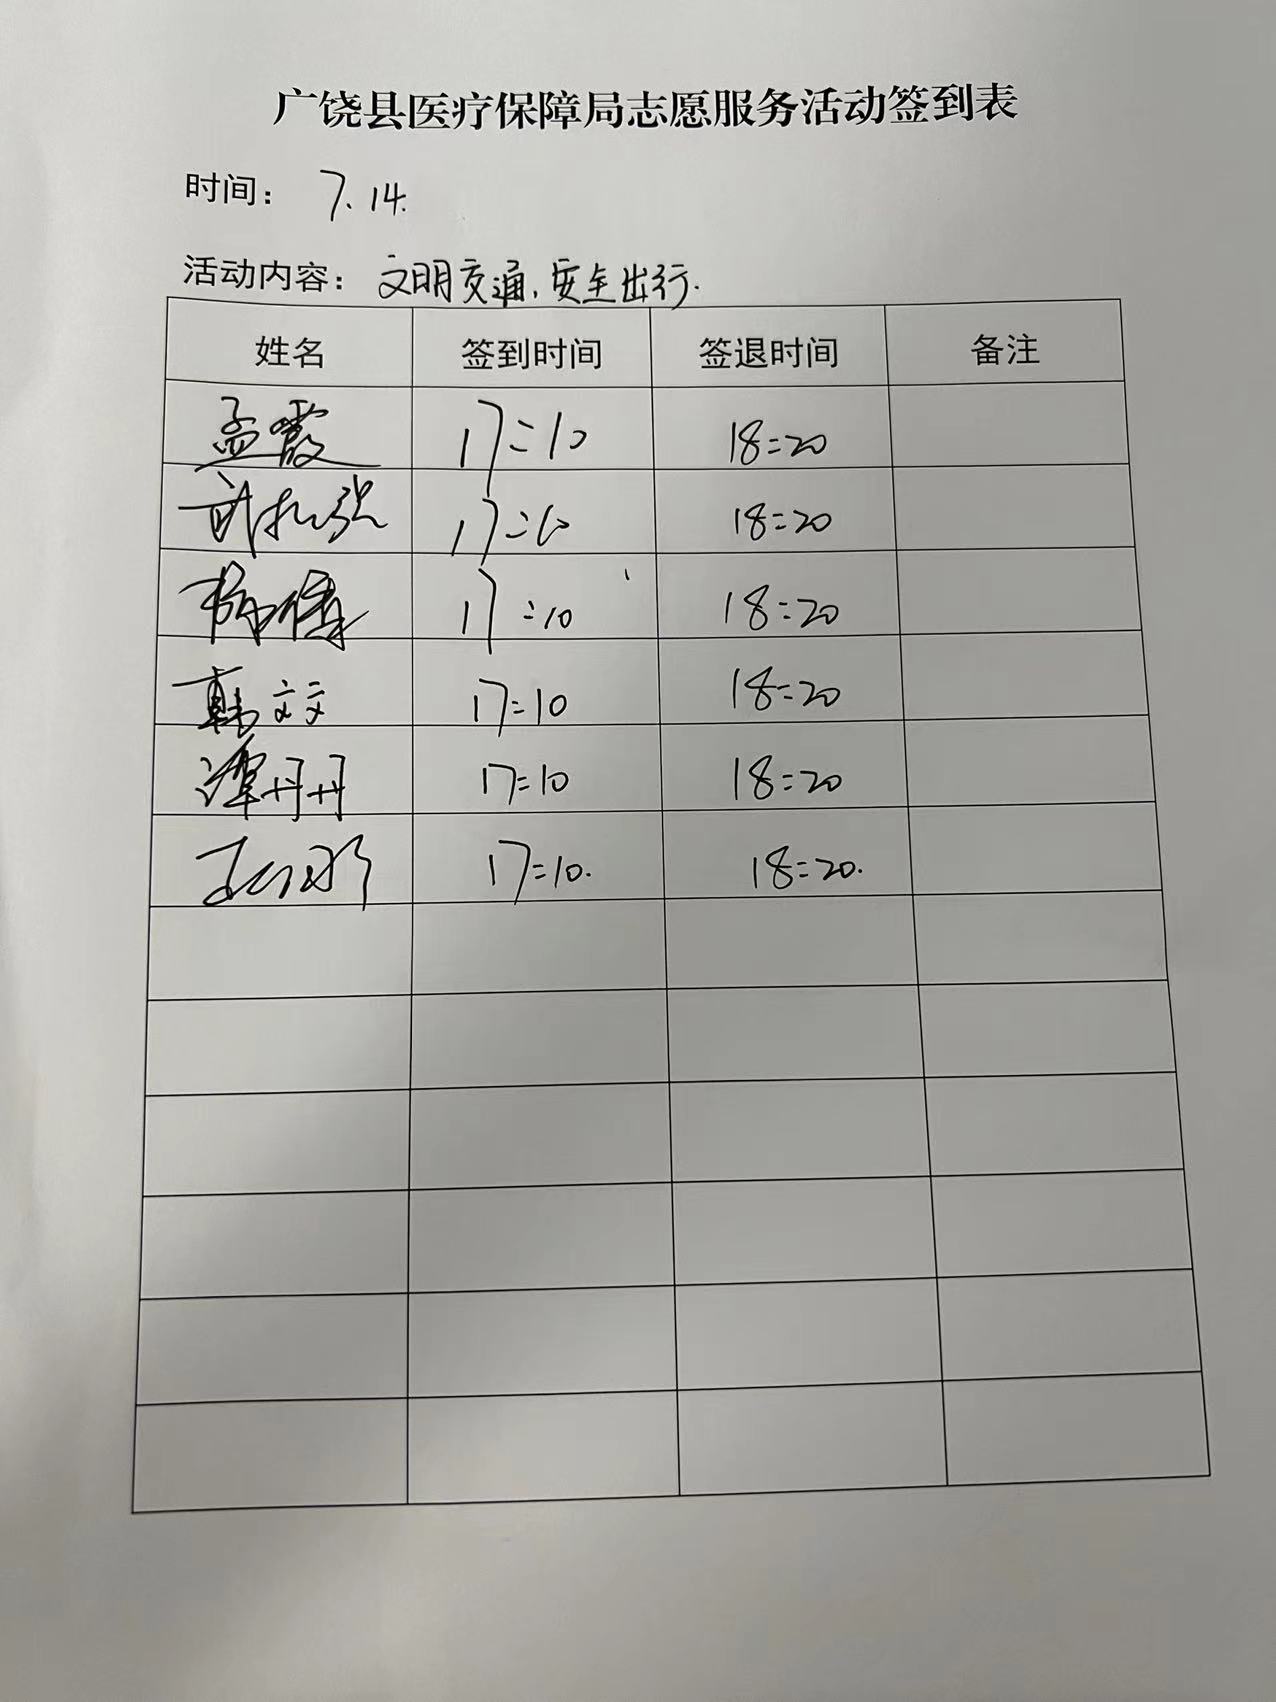 广饶县医疗保障局志愿服务活动签到表
时间： 7.14.
活动内容： 文明交通，安全出行.
姓名 签到时间 签退时间 备注
孟霞 17:10 18:20
17:10 18:20
17:10 18:20
韩文文 17:10 18:20
谭丹丹 17:10 18:20
17:10. 18:20.